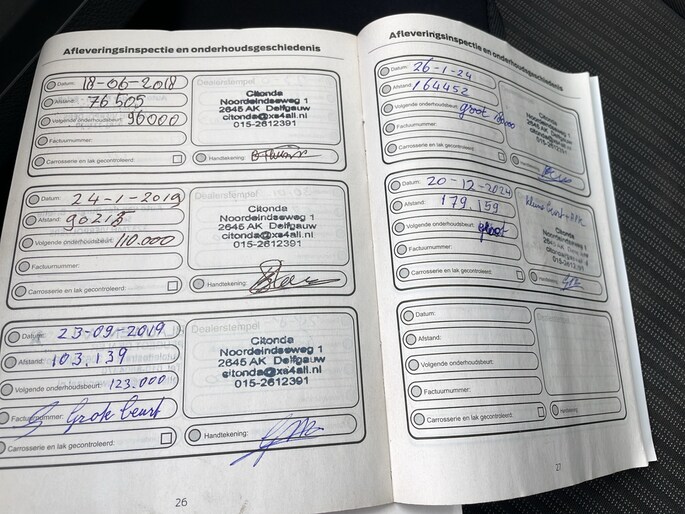 Afleveringsinspectie en onderhoudsgeschiedenis
Datum: 18-06-2018
Afstand: 76505
Volgende onderhoudsbeurt: 96000
Factuurnummer:
Carrosserie en lak gecontroleerd:
Dealerstempel
Citonda
Noordeindseweg 1
2645 AK Delfgauw
citonda@xs4all.nl
015-2612391
Handtekening:
Datum: 24-1-2019
Afstand: 90213
Volgende onderhoudsbeurt: 110.000
Factuurnummer:
Carrosserie en lak gecontroleerd:
Dealerstempel
Citonda
Noordeindseweg 1
2645 AK Delfgauw
citonda@xs4all.nl
015-2612391
Handtekening:
Datum: 23-09-2019
Afstand: 103.139
Volgende onderhoudsbeurt: 123.000
Factuurnummer: Grote beurt
Carrosserie en lak gecontroleerd:
Dealerstempel
Citonda
Noordeindseweg 1
2645 AK Delfgauw
citonda@xs4all.nl
015-2612391
Handtekening:
26
Afleveringsinspectie en onderhoudsgeschiedenis
Datum: 26-1-24
Afstand: 164452
Volgende onderhoudsbeurt: groot
Factuurnummer:
Carrosserie en lak gecontroleerd:
Citonda
Noordeindseweg 1
2645 AK Delfgauw
citonda@xs4all.nl
015-2612391
Handtekening:
Datum: 20-12-2024
Afstand: 179.159
Volgende onderhoudsbeurt: groot
Factuurnummer:
Carrosserie en lak gecontroleerd:
Citonda
Noordeindseweg 1
Handtekening:
Datum:
Afstand:
Volgende onderhoudsbeurt:
Factuurnummer:
Carrosserie en lak gecontroleerd:
Handtekening:
27